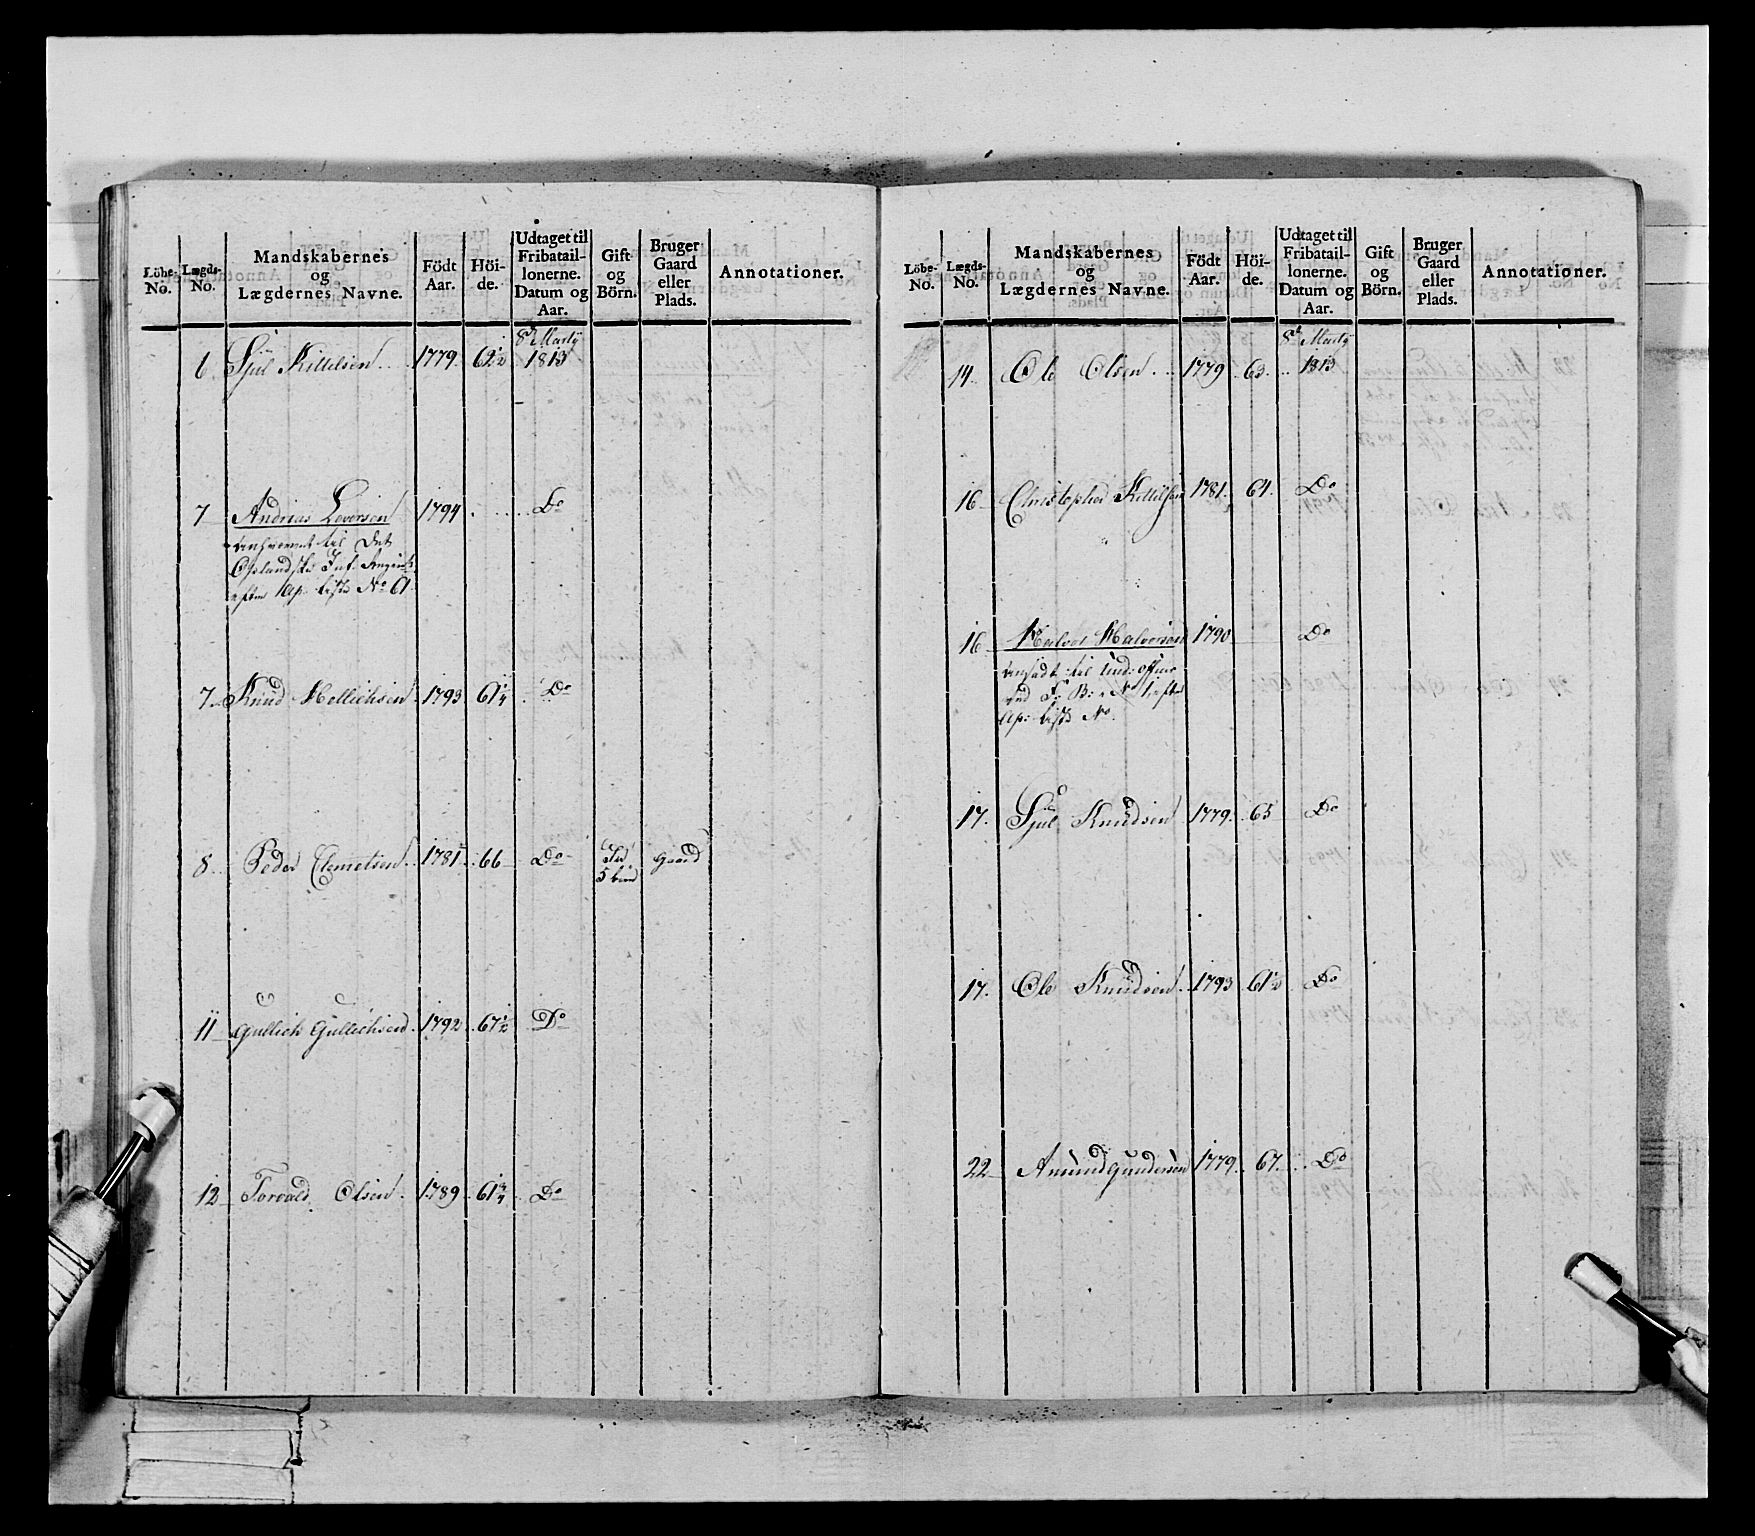 Löbe-No. Lægds-No. Mandskabernes og Lægdernes Navne. Födt Aar. Höi-de. Udtaget til Fribatail-lonerne. Datum og Aar. Gift og Börn. Bruger Gaard eller Plads. Annotationer.
6 Sjul Kittelsen 1779 61½ 8de Martÿ 1813
7 Andreas 1794 Do
til det
Oplandske Inf. Regimt
efter Ap: liste No 61
7 Knud Mellichsen 1793 61¼ Do
8 Peder Clemetsen 1781 66 Do 5 börn Gaard
11 Gullich Gullichsen 1792 67½ Do
12 Torvald Olsen 1789 61¾ Do
Löbe-No. Lægds-No. Mandskabernes og Lægdernes Navne. Födt Aar. Höi-de. Udtaget til Fribatail-lonerne. Datum og Aar. Gift og Börn. Bruger Gaard eller Plads. Annotationer.
14 Ole Olsen 1779 63 8de Martÿ 1813
16 Christopher Kittilsen 1781 64 Do
16 Halvor Halvorsen 1790 Do
ansadt til Und: officer
ved F: B: No 1 efter
Ap: liste No
17. Sjul Knudsen 1779 65 Do
17. Ole Knudsen 1793 61½ Do
22 Amund Gundersen 1779 67 Do